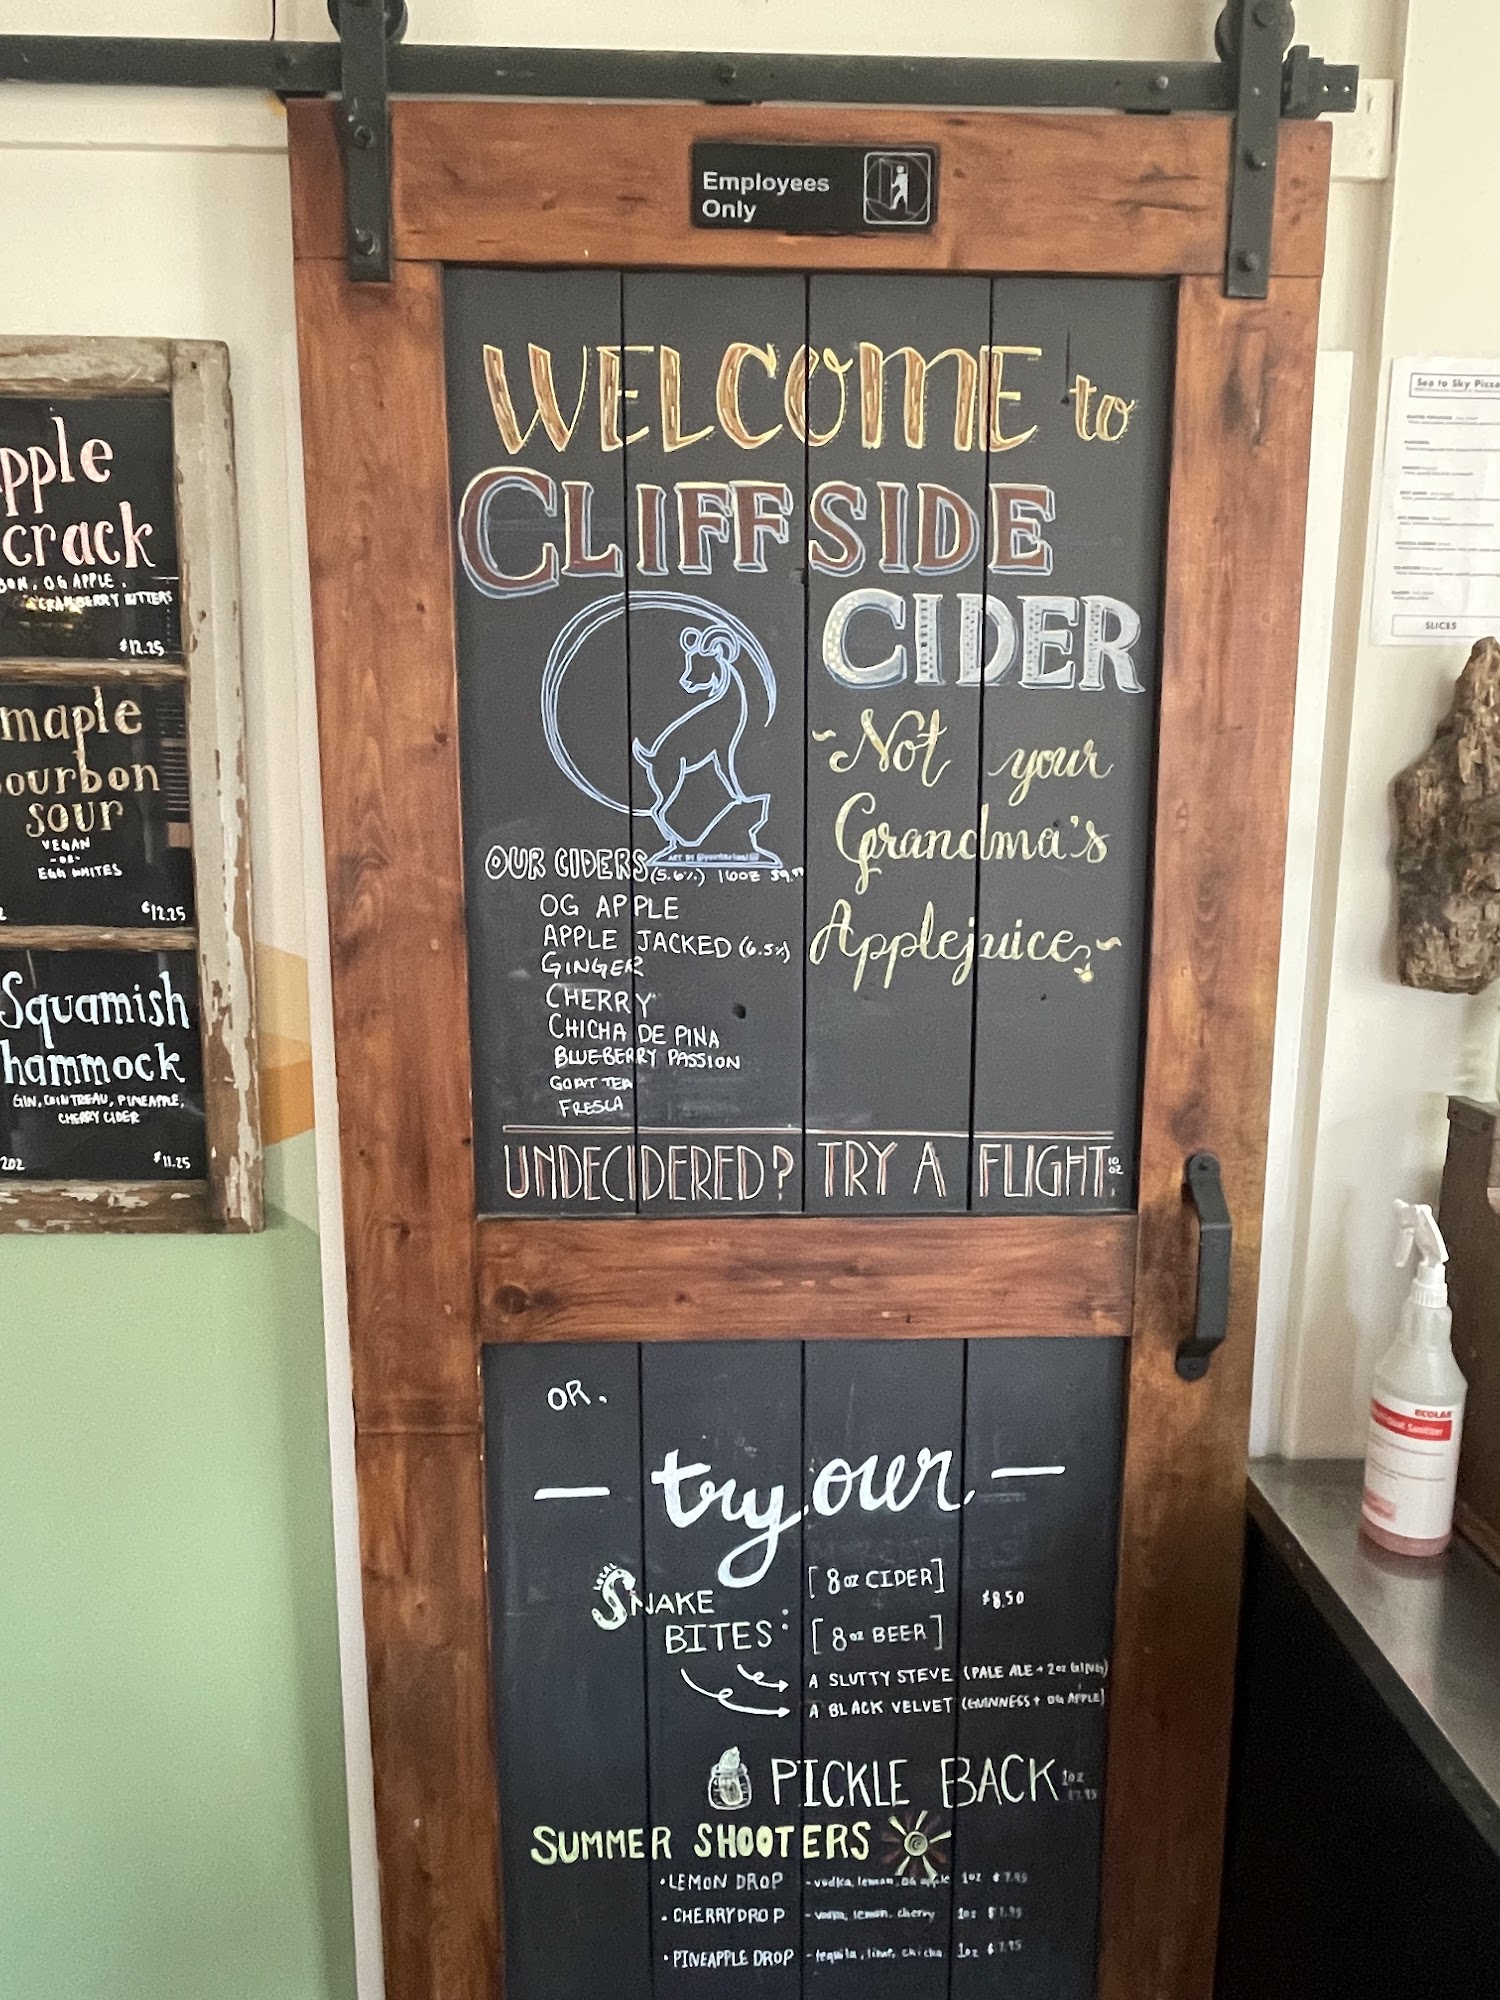 Employees
Only
WELCOME to
CLIFFSIDE
CIDER
~Not your
Grandma's
Applejuice~
OUR CIDERS (5.6%) 16OZ
OG APPLE
APPLE JACKED (6.5%)
GINGER
CHERRY
CHICHA DE PINA
BLUEBERRY PASSION
GOAT TEA
FRESCA
UNDECIDERED? TRY A FLIGHT. 10 OZ
OR.
— try our —
LOCAL
SNAKE
BITES:
[8oz CIDER]
[8oz BEER]
$8.50
A SLUTTY STEVE (PALE ALE + 2oz GING)
A BLACK VELVET (GUINNESS + OG APPLE)
PICKLE BACK 1oz
SUMMER SHOOTERS
• LEMON DROP - vodka, lemon, og apple 1oz $7.95
• CHERRY DROP - lemon, cherry 1oz
• PINEAPPLE DROP - tequila, lime, chicha 1oz
pple
crack
OG APPLE,
CRANBERRY BITTERS
$12.25
maple
ourbon
sour
VEGAN
-OR-
EGG WHITES
$12.25
Squamish
hammock
GIN, COINTREAU, PINEAPPLE,
CHERRY CIDER
2OZ
$11.25
Sea to Sky Pizza
SLICES
ECOLAB
Sanitizer